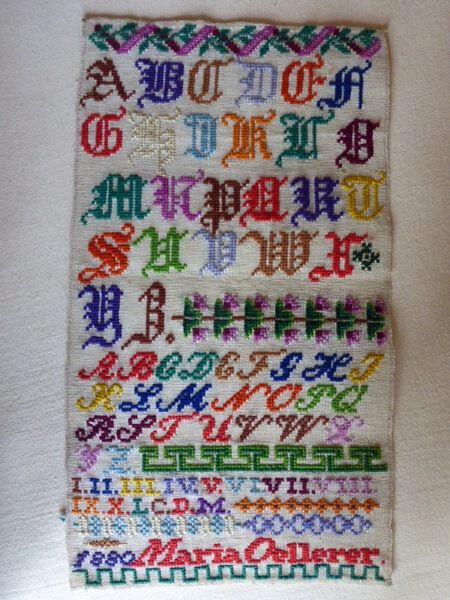 A B C D E F
G H I K L O
M N P Q R T
S U V W X
Y Z.
A B C D E F G H I
K L M N O P Q
R S T U V W X
Y Z.
I.II.III.IV.V.VI.VII.VIII.
IX.X.L.C.D.M.
1880 Maria Oellerer.